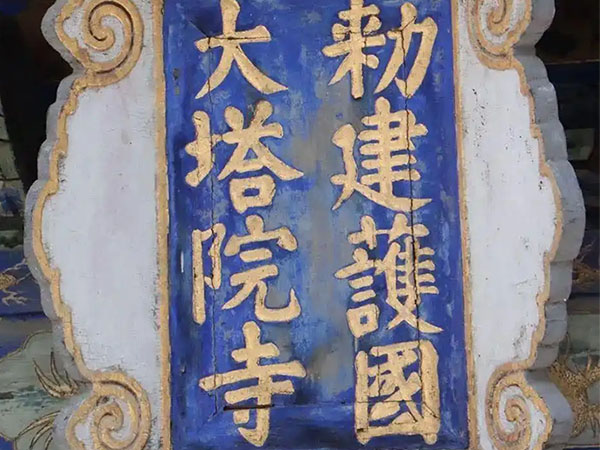 勅建護國
大塔院寺